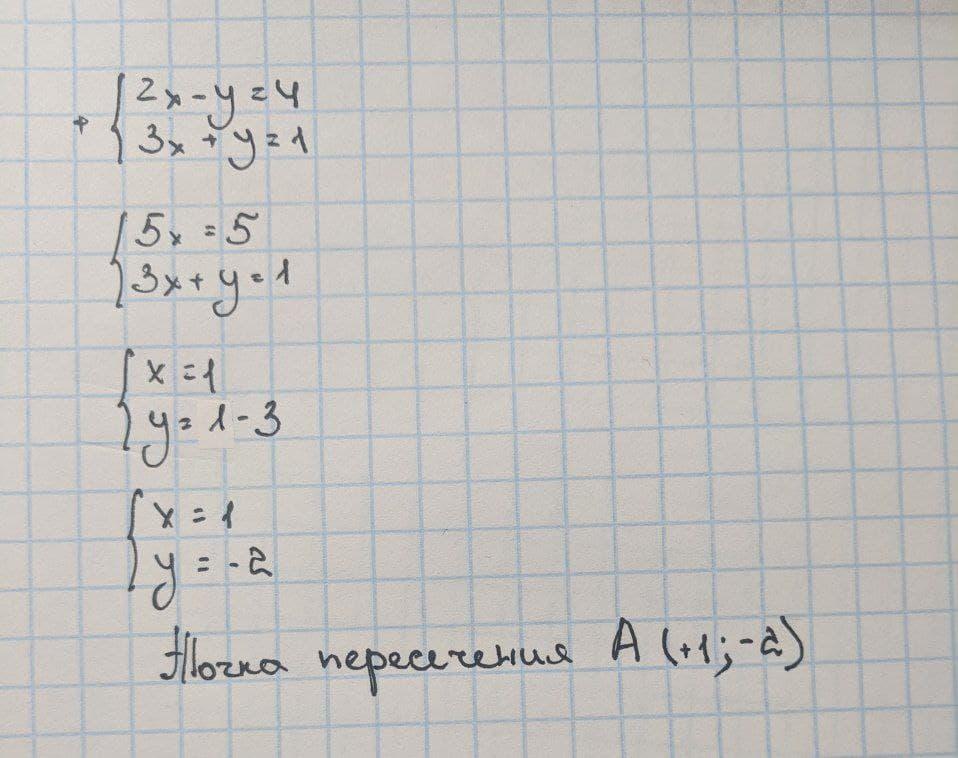 2x-y=4
+
3x+y=1
5x=5
3x+y=1
x=1
y=1-3
x=1
y=-2
Точка пересечения A (+1;-2)